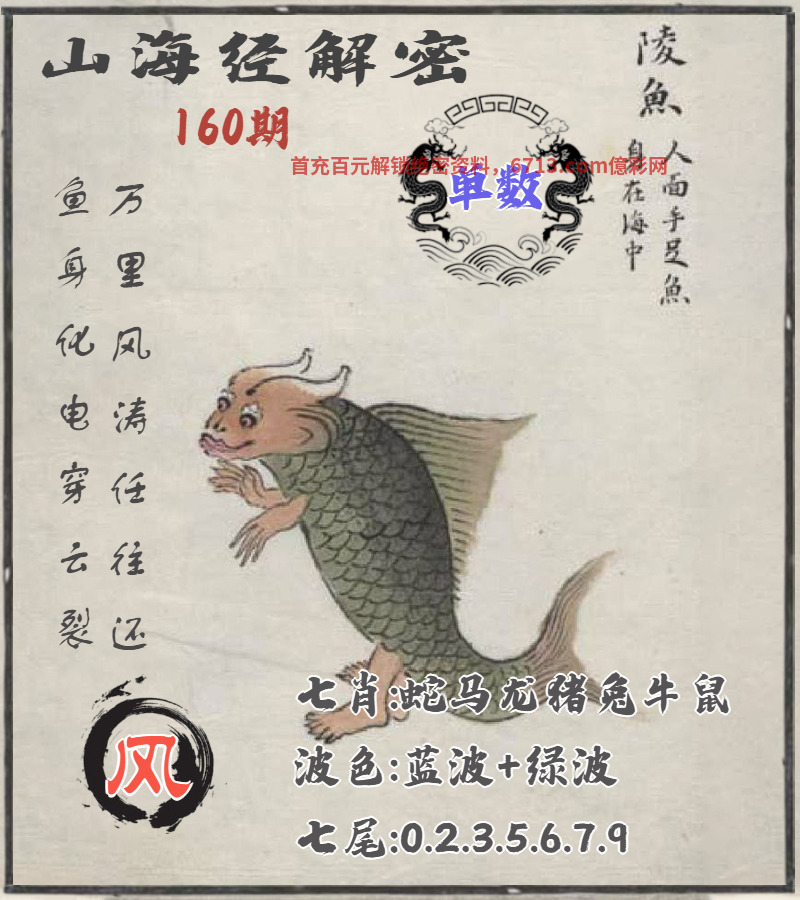 山海经解密
160期
陵魚
人面手足魚
身在海中
首充百元解锁绝密资料，6713.com億彩网
单数
万里风涛任往还
鱼身化电穿云裂
风
七肖:蛇马龙猪兔牛鼠
波色:蓝波+绿波
七尾:0.2.3.5.6.7.9